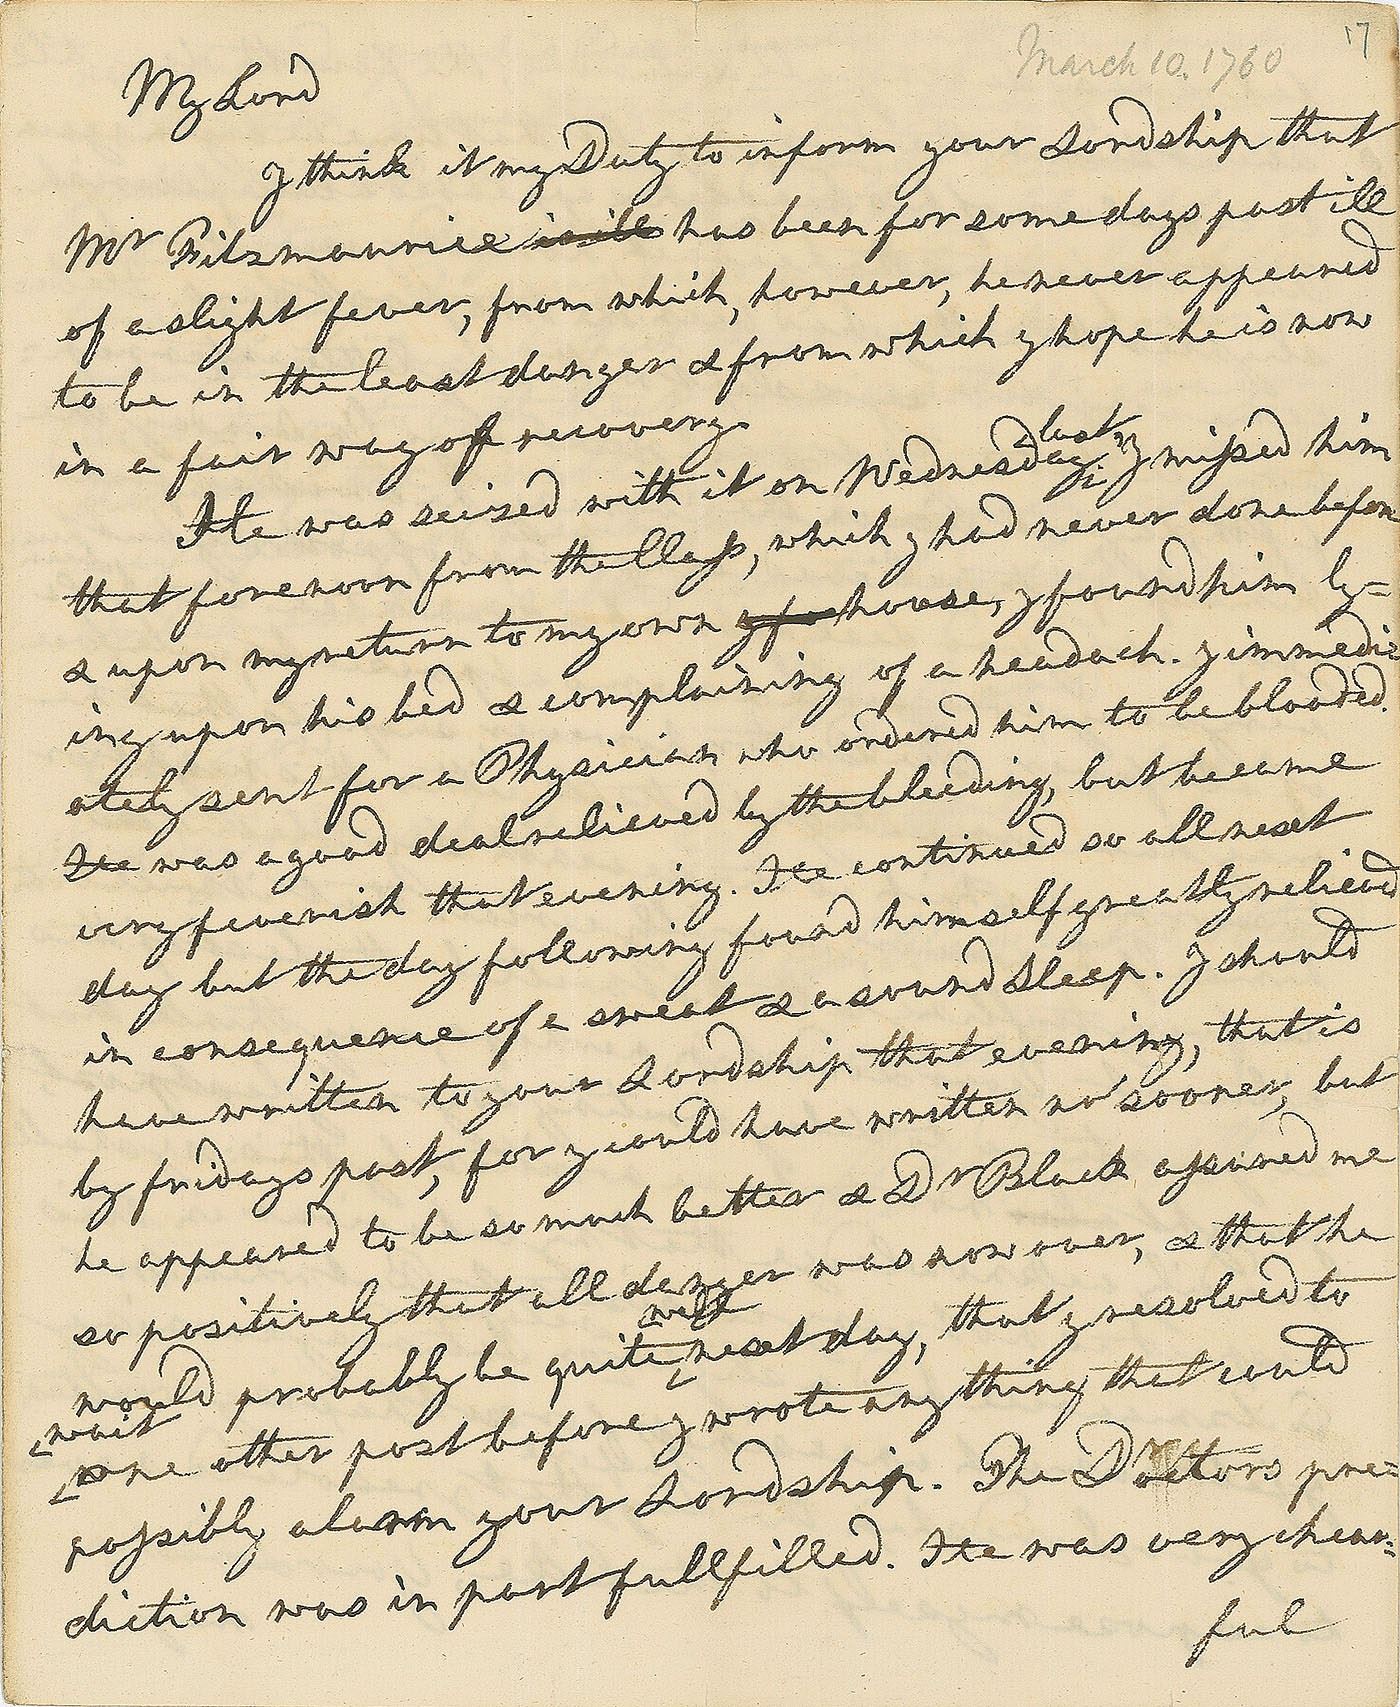 March 10. 1760
17
My Lord
I think it my Duty to inform your Lordship that
Mr Fitzmaurice is ill has been for some days past ill
of a slight fever, from which, however, he never appeared
to be in the least danger & from which I hope he is now
in a fair way of recovery.
last
He was seized with it on Wednesday; I missed him
that forenoon from the Class, which I had never done before
& upon my return to my own house, I found him ly=
ing upon his bed & complaining of a headach. I immedi=
ately sent for a Physician who ordered him to be blooded.
He was a good deal relieved by the bleeding, but became
very feverish that evening. He continued so all next
day but the day following found himself greatly relieved
in consequence of a sweat & a sound Sleep. I should
have written to your Lordship that evening, that is
by fridays post, for I could have written no sooner, but
he appeared to be so much better & Dr Black assured me
so positively that all danger was now over, & that he
well
would probably be quite next day, that I resolved to
wait
one other post before I wrote any thing that could
possibly alarm your Lordship. The Doctors pre=
diction was in part fullfilled. He was very chear=
ful